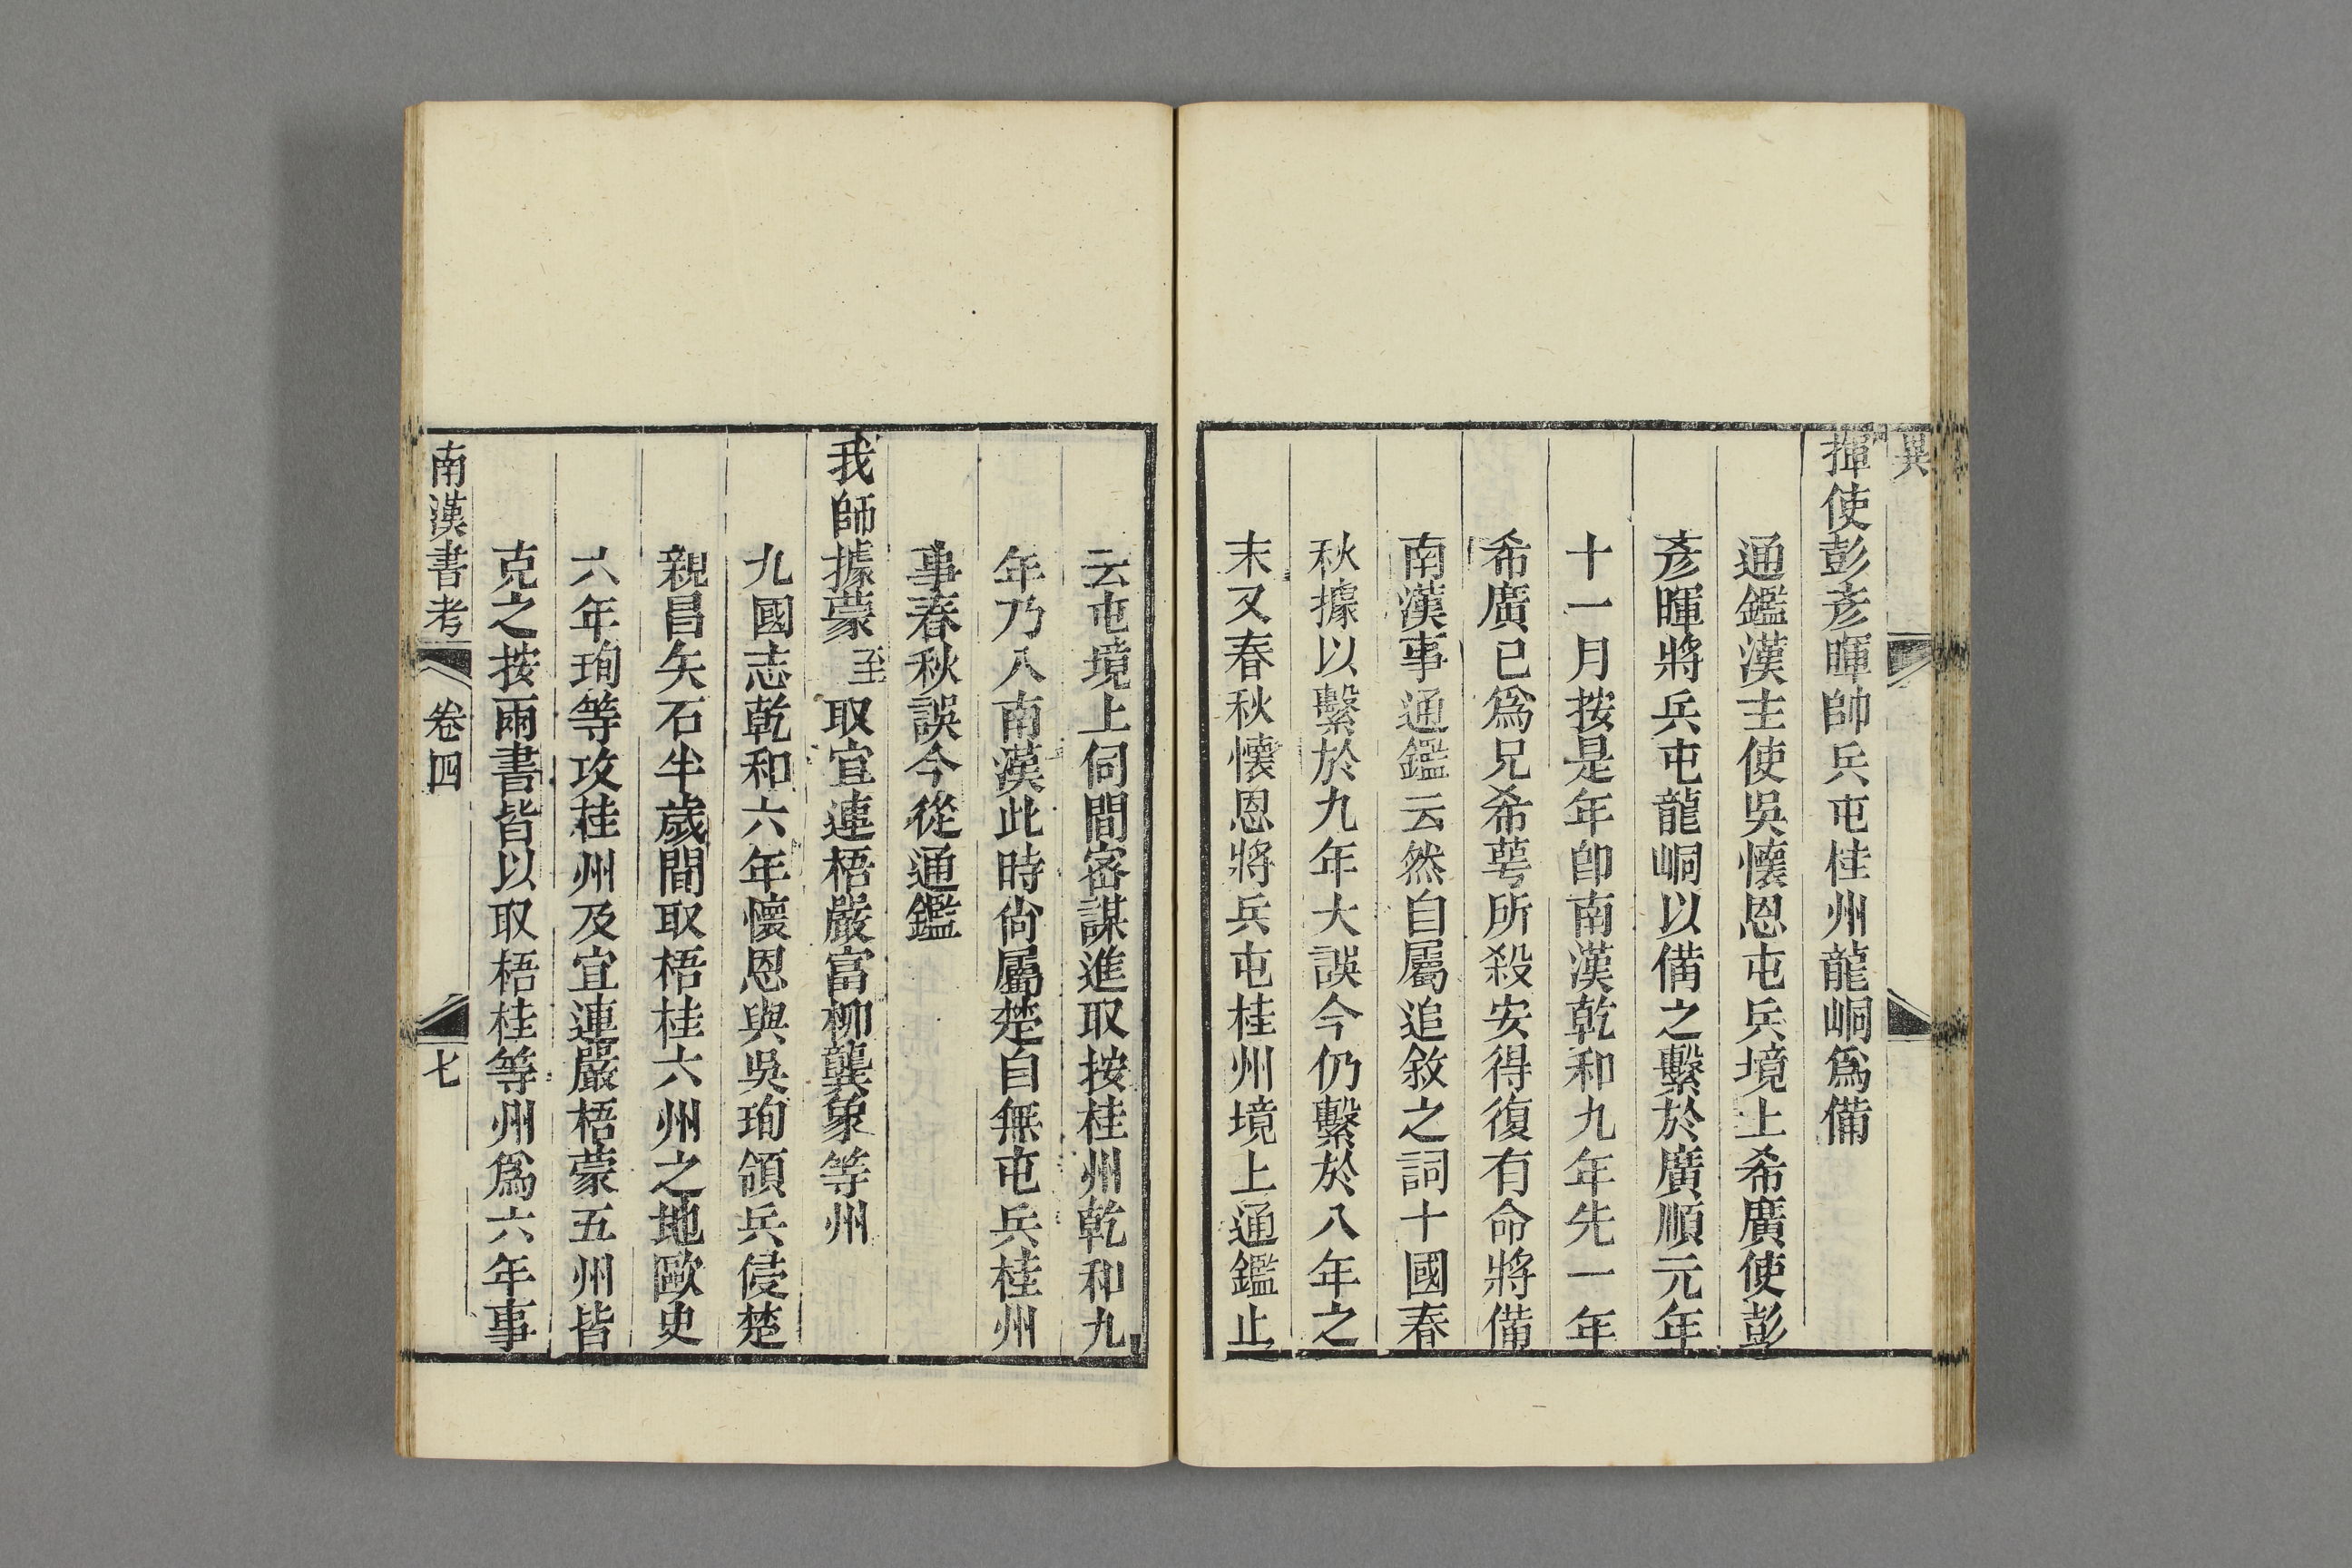 異
揮使彭彥暉帥兵屯桂州龍峒爲備
通鑑漢主使吳懷恩屯兵境上希廣使彭
彥暉將兵屯龍峒以備之繫於廣順元年
十一月按是年卽南漢乾和九年先一年
希廣已爲兄希萼所殺安得復有命將備
南漢事通鑑云然自屬追敘之詞十國春
秋據以繫於九年大誤今仍繫於八年之
末又春秋懷恩將兵屯桂州境上通鑑止
云屯境上伺間密謀進取按桂州乾和九
年乃入南漢此時尙屬楚自無屯兵桂州
事春秋誤今從通鑑
我師據蒙至取宜連梧嚴富柳龔象等州
九國志乾和六年懷恩與吳珣領兵侵楚
親昌矢石半歲間取梧桂六州之地歐史
六年珣等攻桂州及宜連嚴梧蒙五州皆
克之按兩書皆以取梧桂等州爲六年事
南漢書考 卷四 七